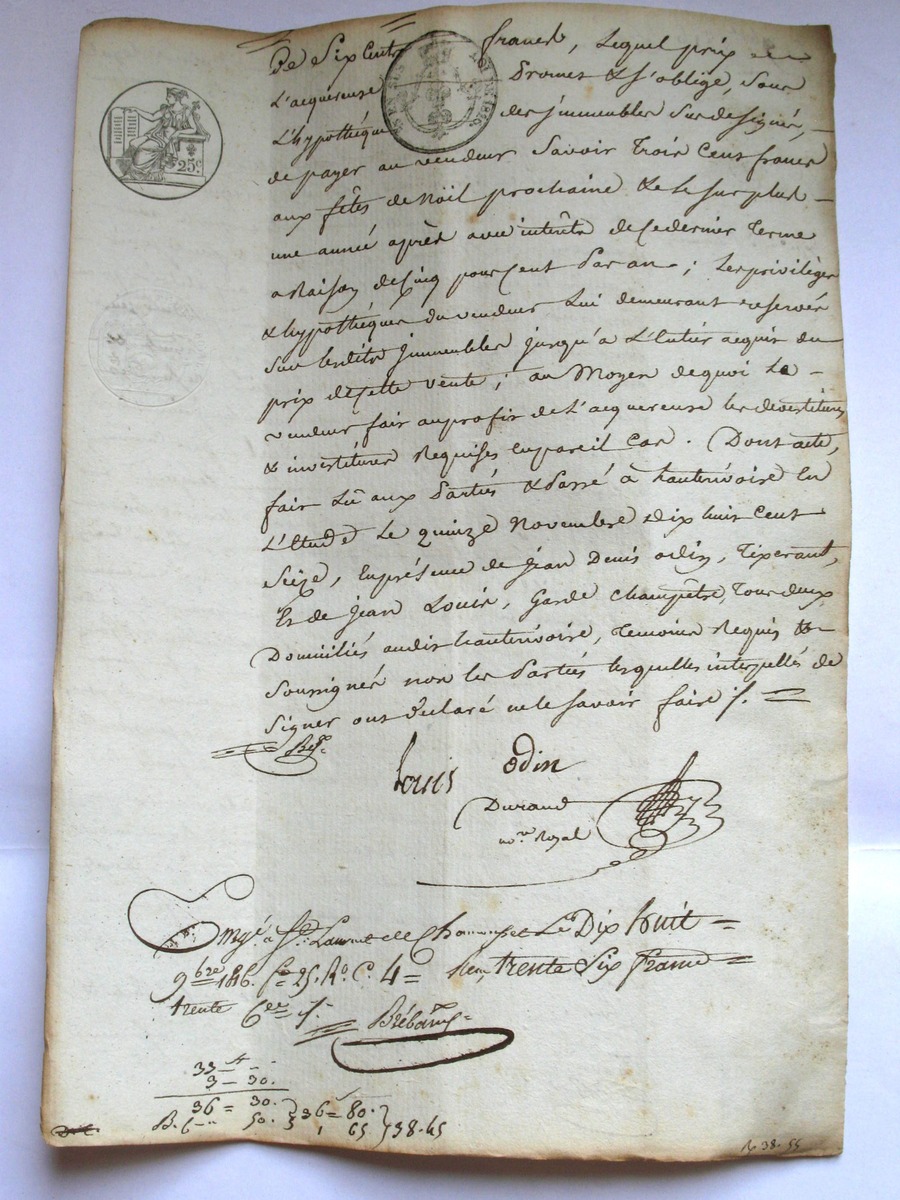 De Six Cents francs, Lequel prix
L'acquereuse promet & s'oblige, sous
L'hypothéque des jmmeubles Susdesignés, —
de payer au vendeur Savoir Trois Cent francs
aux fêtes de Noël prochaine & le Surplus —
une année après avec intérêts de ce dernier Terme
a Raison de Cinq pour Cent par an ; les privilèges
& hypothéques du vendeur Lui demeurant reservés
Sur lesdits jmmeubles jusqu'à L'entier acquis du
prix de cette vente ; au Moyen de quoi Le —
vendeur fait au profit de L'acquereuse les devestitures
& investitures Requises en pareil Cas . Dont acte,
fait Lû aux parties & passé à hauterivoire En
L'Etude Le quinze Novembre Dix huit Cent
Seize, En présence de jean Denis odin, Tixerant,
Et de jean Louis, Garde champêtre, Tous deux
Domiciliés audit hauterivoire, Temoins Requis &
Soussignés non les parties lesquelles interpellés de
Signer ont declaré ne le Savoir faire ./. =
25c.
Louis odin
Durand
nore. Royal
Enrgé. a St. Laurent de Chamousset Le Dix huit =
9bre 1816. fo 25. Ro. C. 4 = Reçu trente Six francs =
trente Ces ./.
33 —
3 — 30.
36 = 30.
50. 36 = 80.
1 65 38.45
38.55